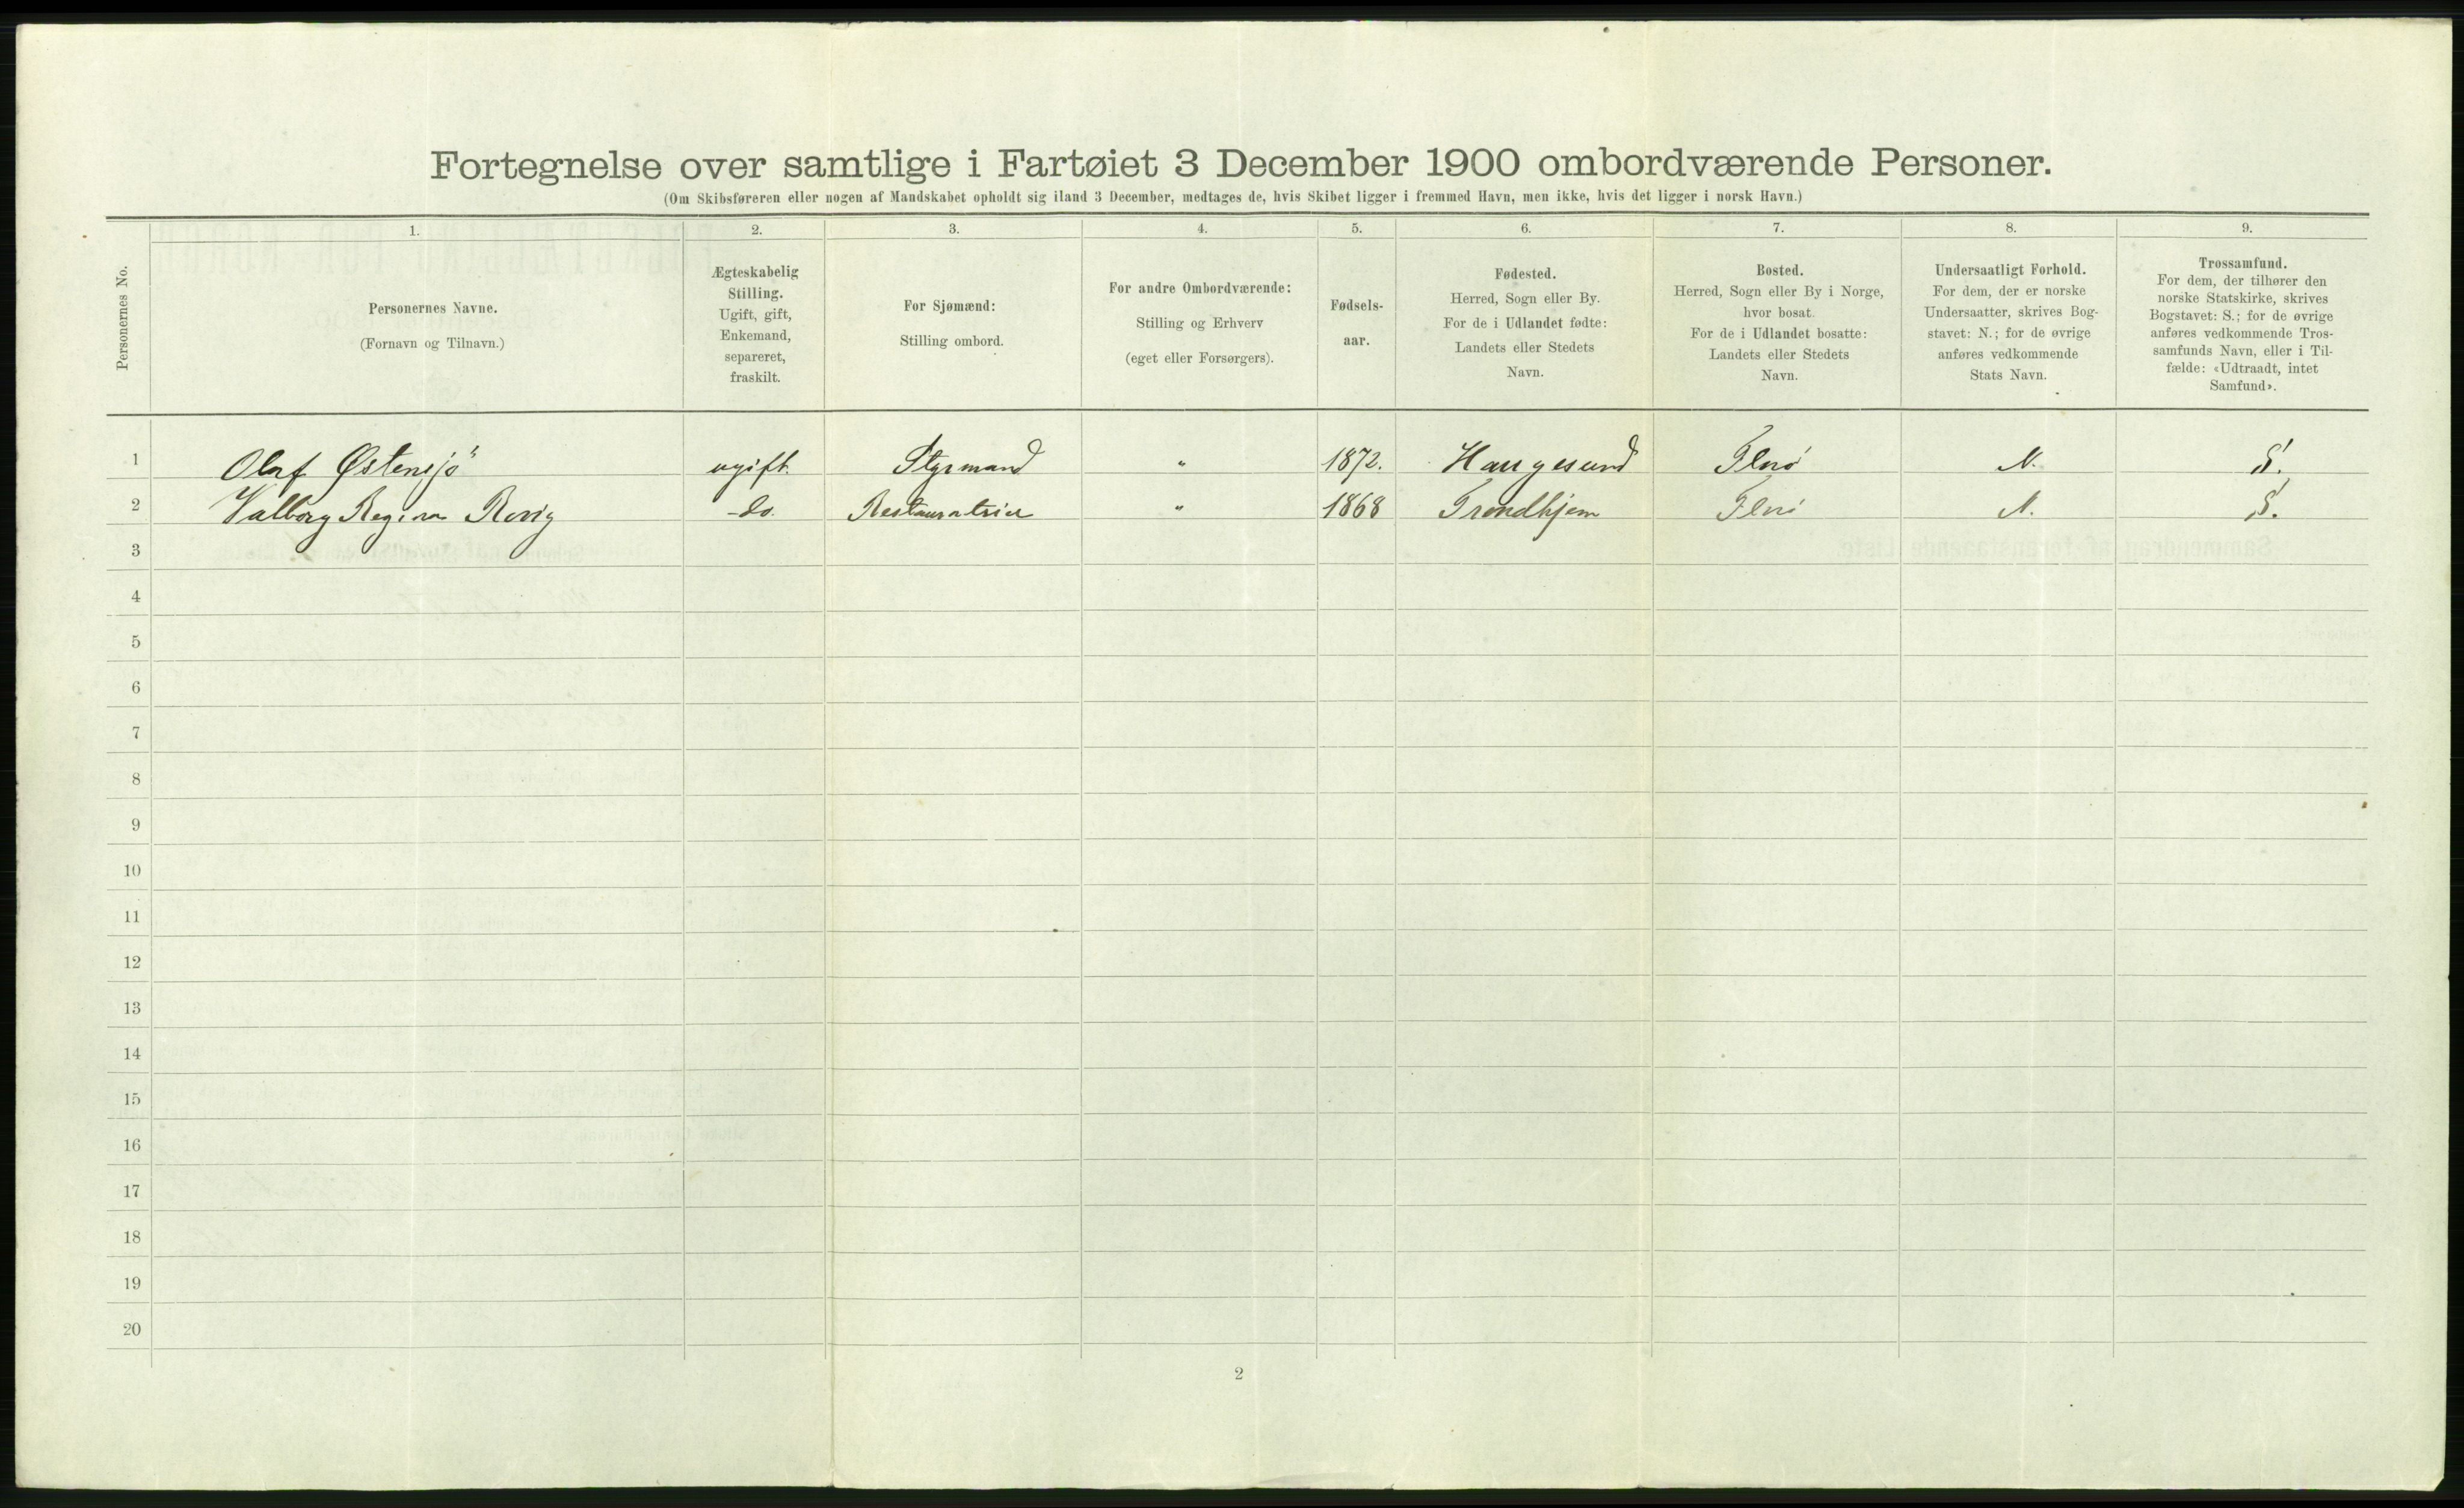 Fortegnelse over samtlige i Fartøiet 3 December 1900 ombordværende Personer.
(Om Skibsføreren eller nogen af Mandskabet opholdt sig iland 3 December, medtages de, hvis Skibet ligger i fremmed Havn, men ikke, hvis det ligger i norsk Havn.)
Personernes No.
1. 2. 3. 4. 5. 6. 7. 8. 9.
Personernes Navne.
(Fornavn og Tilnavn.)
Ægteskabelig
Stilling.
Ugift, gift,
Enkemand,
separeret,
fraskilt.
For Sjømænd:
Stilling ombord.
For andre Ombordværende:
Stilling og Erhverv
(eget eller Forsørgers).
Fødsels-
aar.
Fødested.
Herred, Sogn eller By.
For de i Udlandet fødte:
Landets eller Stedets
Navn.
Bosted.
Herred, Sogn eller By i Norge,
hvor bosat.
For de i Udlandet bosatte:
Landets eller Stedets
Navn.
Undersaatligt Forhold.
For dem, der er norske
Undersaatter, skrives Bog-
stavet: N.; for de øvrige
anføres vedkommende
Stats Navn.
Trossamfund.
For dem, der tilhører den
norske Statskirke, skrives
Bogstavet: S.; for de øvrige
anføres vedkommende Tros-
samfunds Navn, eller i Til-
fælde: «Udtraadt, intet
Samfund».
1 Olaf Østensjö ugift. Styrmand " 1872. Haugesund N. S.
2 Valborg Regina do. " 1868 Trondhjem N. S.
3
4
5
6
7
8
9
10
11
12
13
14
15
16
17
18
19
20
2